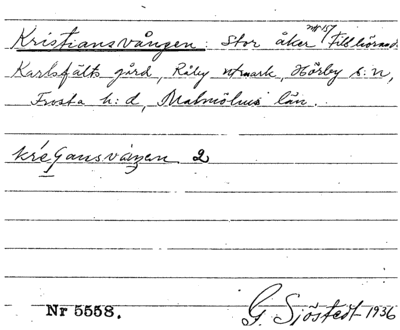 Kristiansvången: Stor åker nr 157 Tillhörande
Karlsfälts gård, Råby utmark, Hörby s:n,
Frosta h:d, Malmöhus län.
2
Nr 5558.
G. Sjöstedt 1936